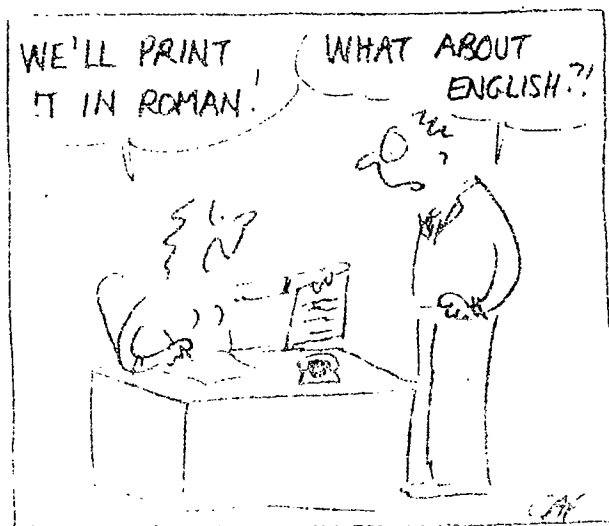 WE'LL PRINT
IT IN ROMAN!
WHAT ABOUT
ENGLISH?!